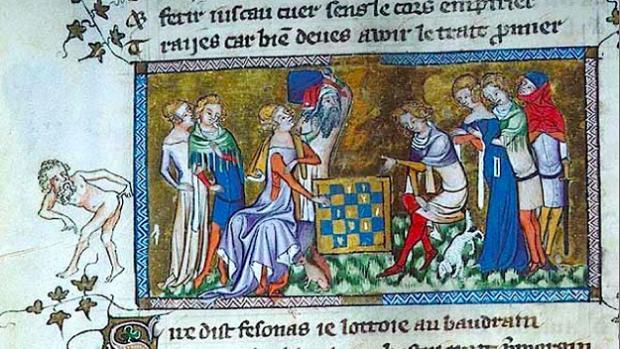 ferir iuscau cuer sens le cors empirier
Traijes car biē deues avoir le trait p̄mier
Que dist fesonas ie lottroie au baudrain